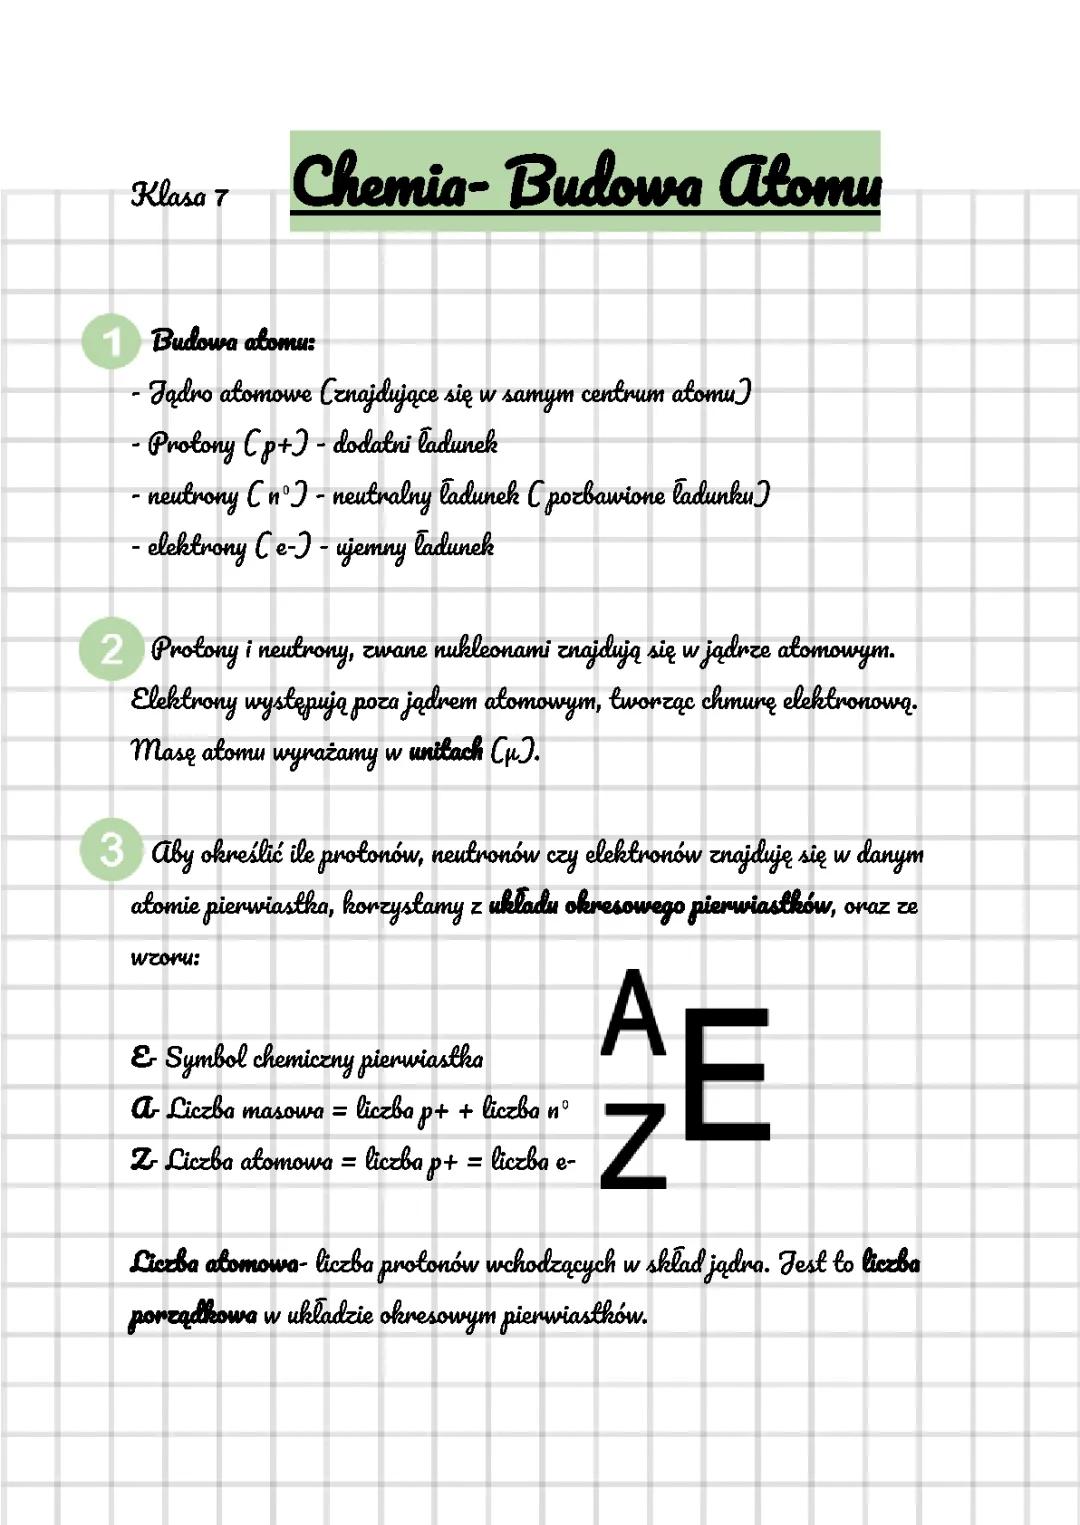 Klasa 7
Chemia- Budowa Atomu
1 Budowa atomu:
- Jądro atomowe (znajdujące się w samym centrum atomu)
- Protony (p+) - dodatni ładunek
- neutrony (n⁰) - neutralny ładunek (pozbawione ładunku)
- elektrony (e-) - ujemny ładunek
2 Protony i neutrony, zwane nukleonami znajdują się w jądrze atomowym.
Elektrony występują poza jądrem atomowym, tworząc chmurę elektronową.
Masę atomu wyrażamy w unitach (μ).
3 Aby określić ile protonów, neutronów czy elektronów znajduję się w danym
atomie pierwiastka, korzystamy z układu okresowego pierwiastków, oraz ze
wzoru:
E- Symbol chemiczny pierwiastka
A- Liczba masowa = liczba p+ + liczba n⁰
Z- Liczba atomowa = liczba p+ = liczba e-
A
E
Z
Liczba atomowa- liczba protonów wchodzących w skład jądra. Jest to liczba
porządkowa w układzie okresowym pierwiastków.